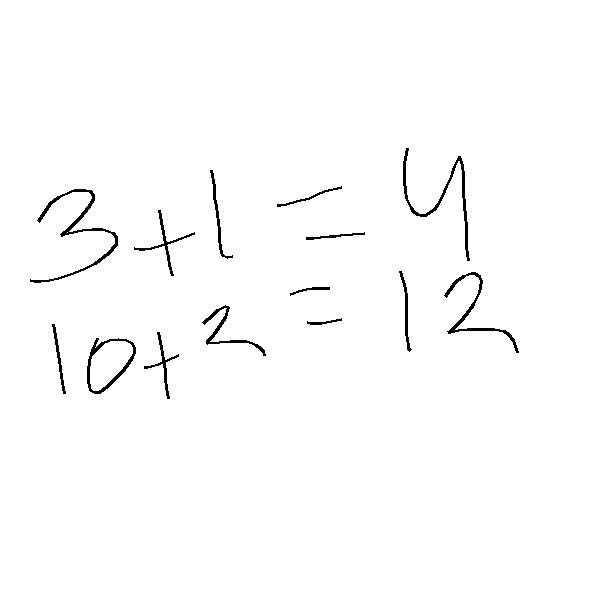 3+1=4
10+2=12